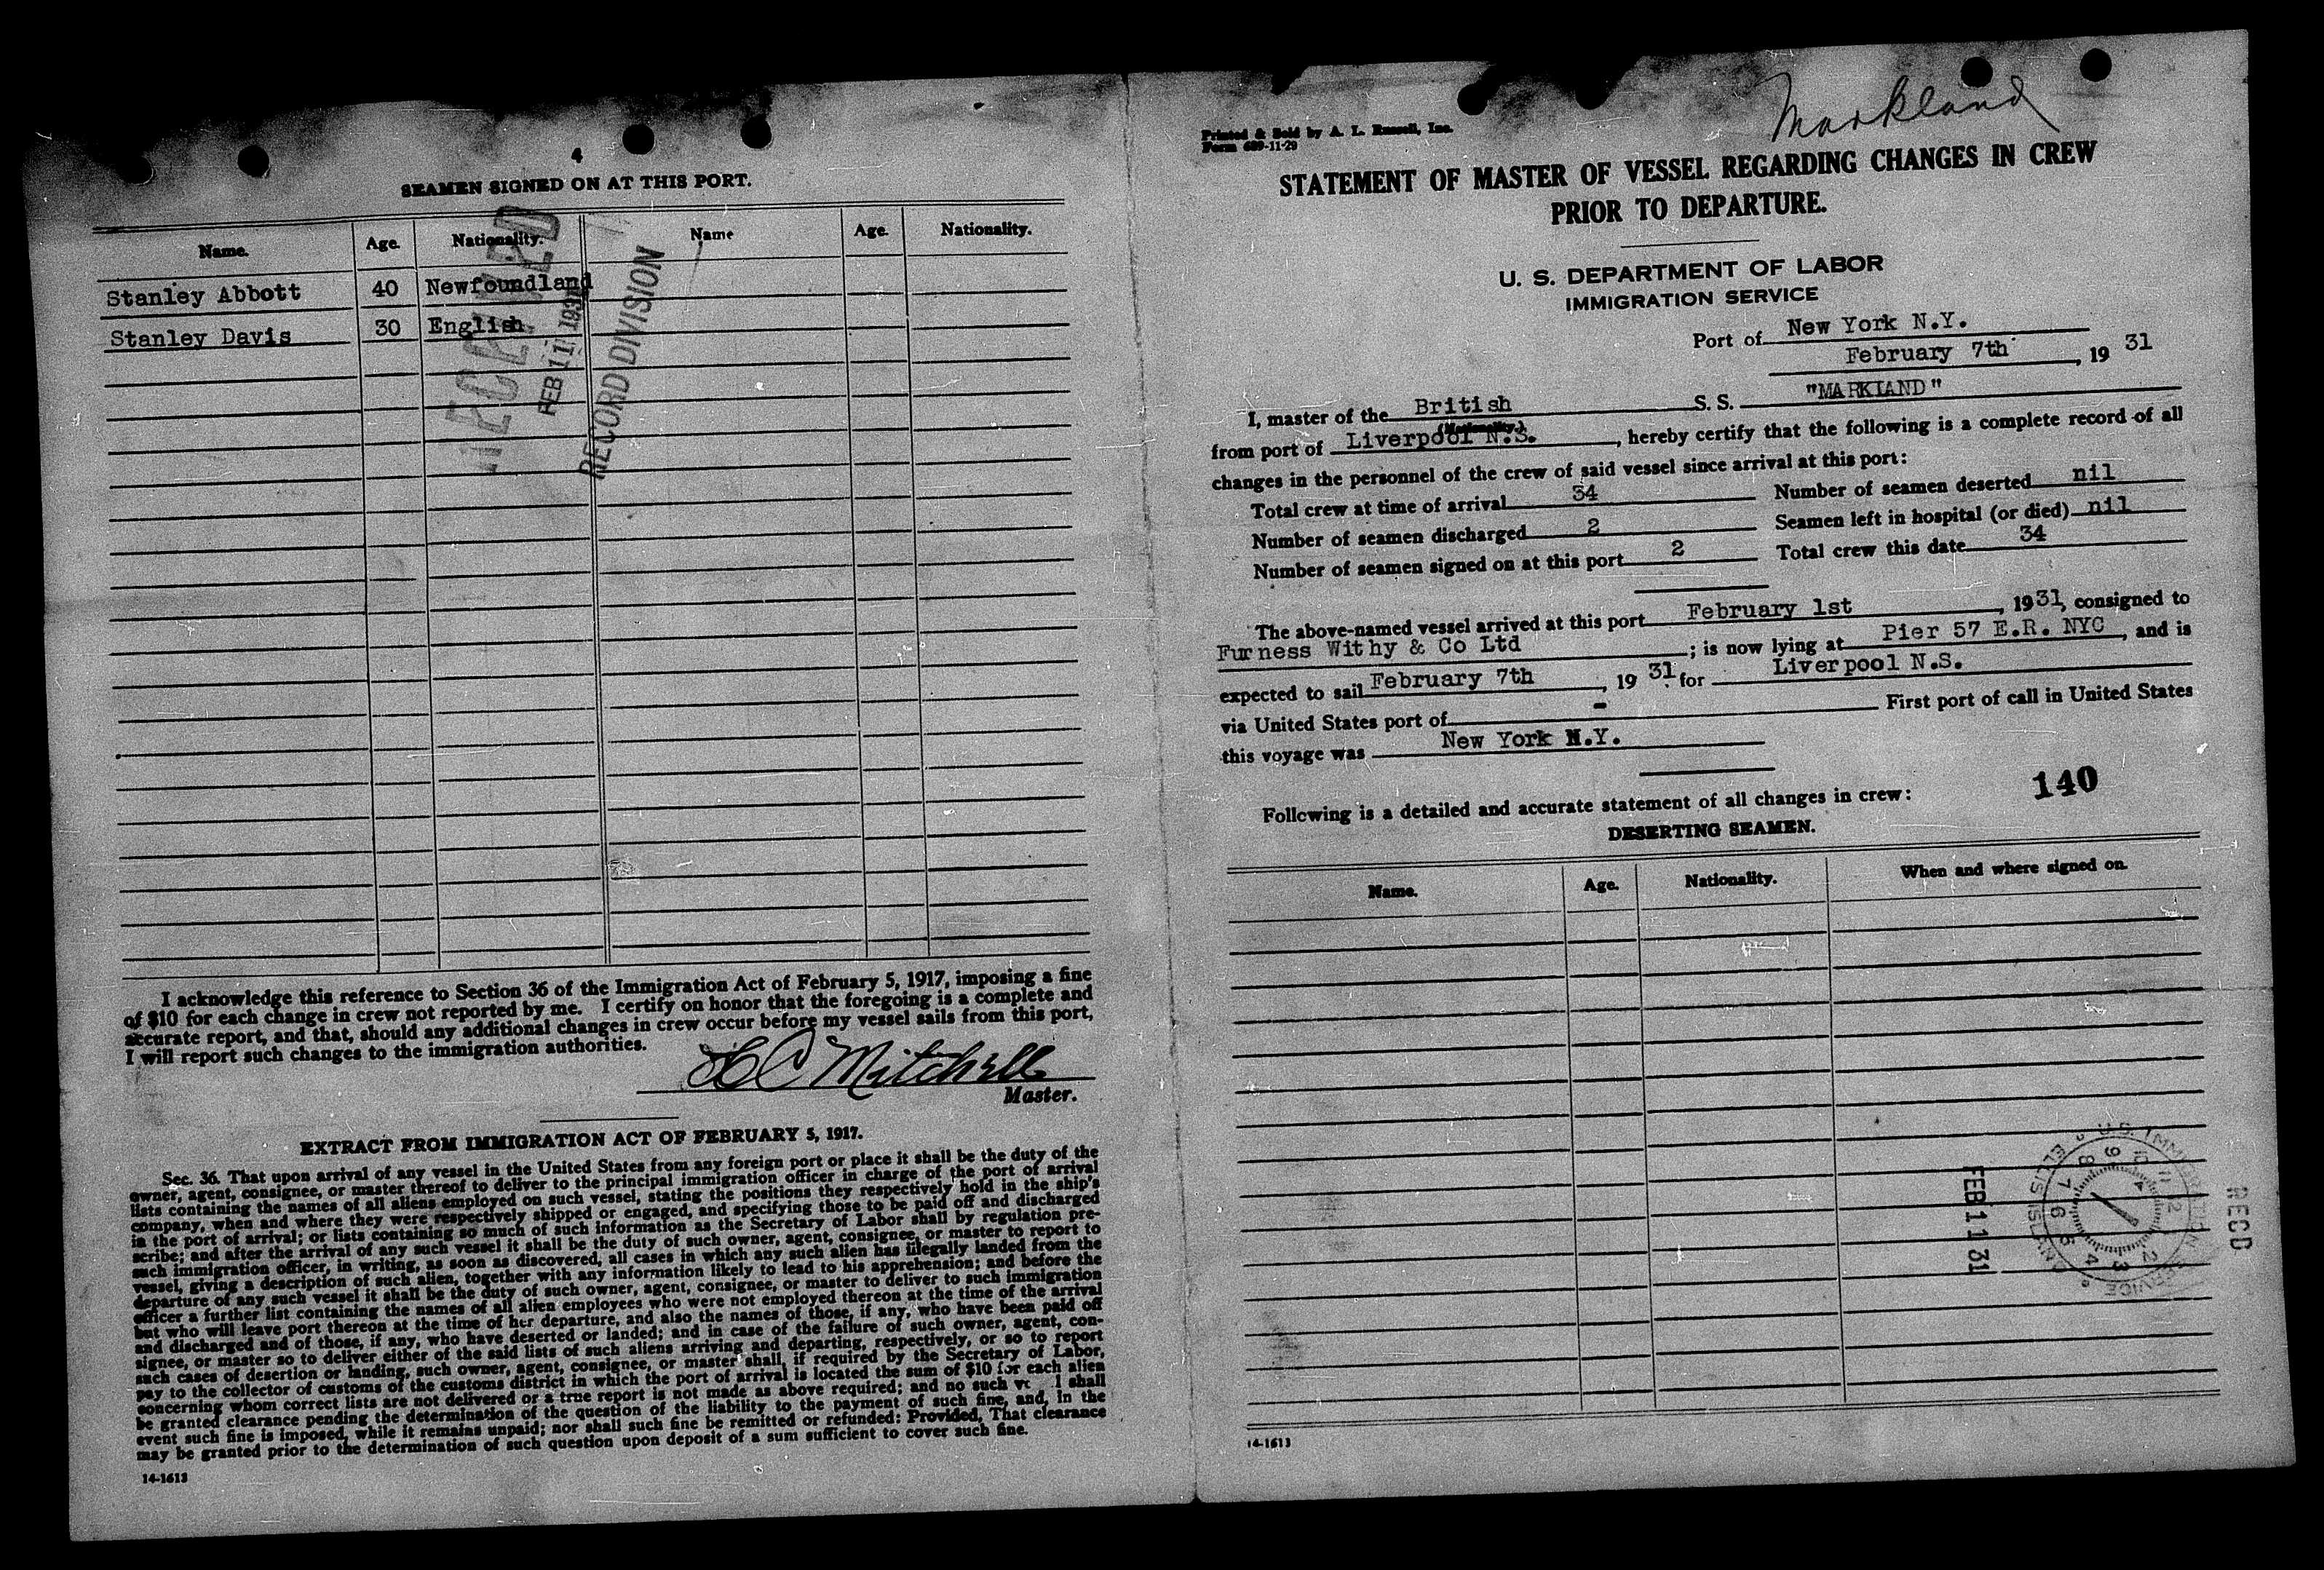 4
SEAMEN SIGNED ON AT THIS PORT.
Name. Age. Nationality. Name Age. Nationality.
Stanley Abbott 40 Newfoundland
Stanley Davis 30 English
FEB 11 1931
RECORD DIVISION
I acknowledge this reference to Section 36 of the Immigration Act of February 5, 1917, imposing a fine
of $10 for each change in crew not reported by me. I certify on honor that the foregoing is a complete and
accurate report, and that, should any additional changes in crew occur before my vessel sails from this port,
I will report such changes to the immigration authorities.
Mitchell
Master.
EXTRACT FROM IMMIGRATION ACT OF FEBRUARY 5, 1917.
Sec. 36. That upon arrival of any vessel in the United States from any foreign port or place it shall be the duty of the
owner, agent, consignee, or master thereof to deliver to the principal immigration officer in charge of the port of arrival
lists containing the names of all aliens employed on such vessel, stating the positions they respectively hold in the ship's
company, when and where they were respectively shipped or engaged, and specifying those to be paid off and discharged
in the port of arrival; or lists containing so much of such information as the Secretary of Labor shall by regulation pre-
scribe; and after the arrival of any such vessel it shall be the duty of such owner, agent, consignee, or master to report to
such immigration officer, in writing, as soon as discovered, all cases in which any such alien has illegally landed from the
vessel, giving a description of such alien, together with any information likely to lead to his apprehension; and before the
departure of any such vessel it shall be the duty of such owner, agent, consignee, or master to deliver to such immigration
officer a further list containing the names of all alien employees who were not employed thereon at the time of the arrival
but who will leave port thereon at the time of her departure, and also the names of those, if any, who have been paid off
and discharged and of those, if any, who have deserted or landed; and in case of the failure of such owner, agent, con-
signee, or master so to deliver either of the said lists of such aliens arriving and departing, respectively, or so to report
such cases of desertion or landing, such owner, agent, consignee, or master shall, if required by the Secretary of Labor,
pay to the collector of customs of the customs district in which the port of arrival is located the sum of $10 for each alien
concerning whom correct lists are not delivered or a true report is not made as above required; and no such ve l shall
be granted clearance pending the determination of the question of the liability to the payment of such fine, and, in the
event such fine is imposed, while it remains unpaid; nor shall such fine be remitted or refunded: Provided, That clearance
may be granted prior to the determination of such question upon deposit of a sum sufficient to cover such fine.
14-1613
Markland
Printed & Sold by A. L. Russell, Inc.
Form 689-11-29
STATEMENT OF MASTER OF VESSEL REGARDING CHANGES IN CREW
PRIOR TO DEPARTURE.
U. S. DEPARTMENT OF LABOR
IMMIGRATION SERVICE
Port of New York N.Y.
February 7th, 19 31
I, master of the British S. S. "MARKLAND"
(Nationality.)
from port of Liverpool N.S., hereby certify that the following is a complete record of all
changes in the personnel of the crew of said vessel since arrival at this port:
Total crew at time of arrival 34 Number of seamen deserted nil
Number of seamen discharged 2 Seamen left in hospital (or died) nil
Number of seamen signed on at this port 2 Total crew this date 34
The above-named vessel arrived at this port February 1st, 1931, consigned to
Furness Withy & Co Ltd; is now lying at Pier 57 E.R. NYC, and is
expected to sail February 7th, 19 31 for Liverpool N.S.
via United States port of - First port of call in United States
this voyage was New York N.Y.
140
Following is a detailed and accurate statement of all changes in crew:
DESERTING SEAMEN.
Name. Age. Nationality. When and where signed on.
FEB 11 31
U.S. IMMIGRATION SERVICE
ELLIS ISLAND
RECD
14-1613